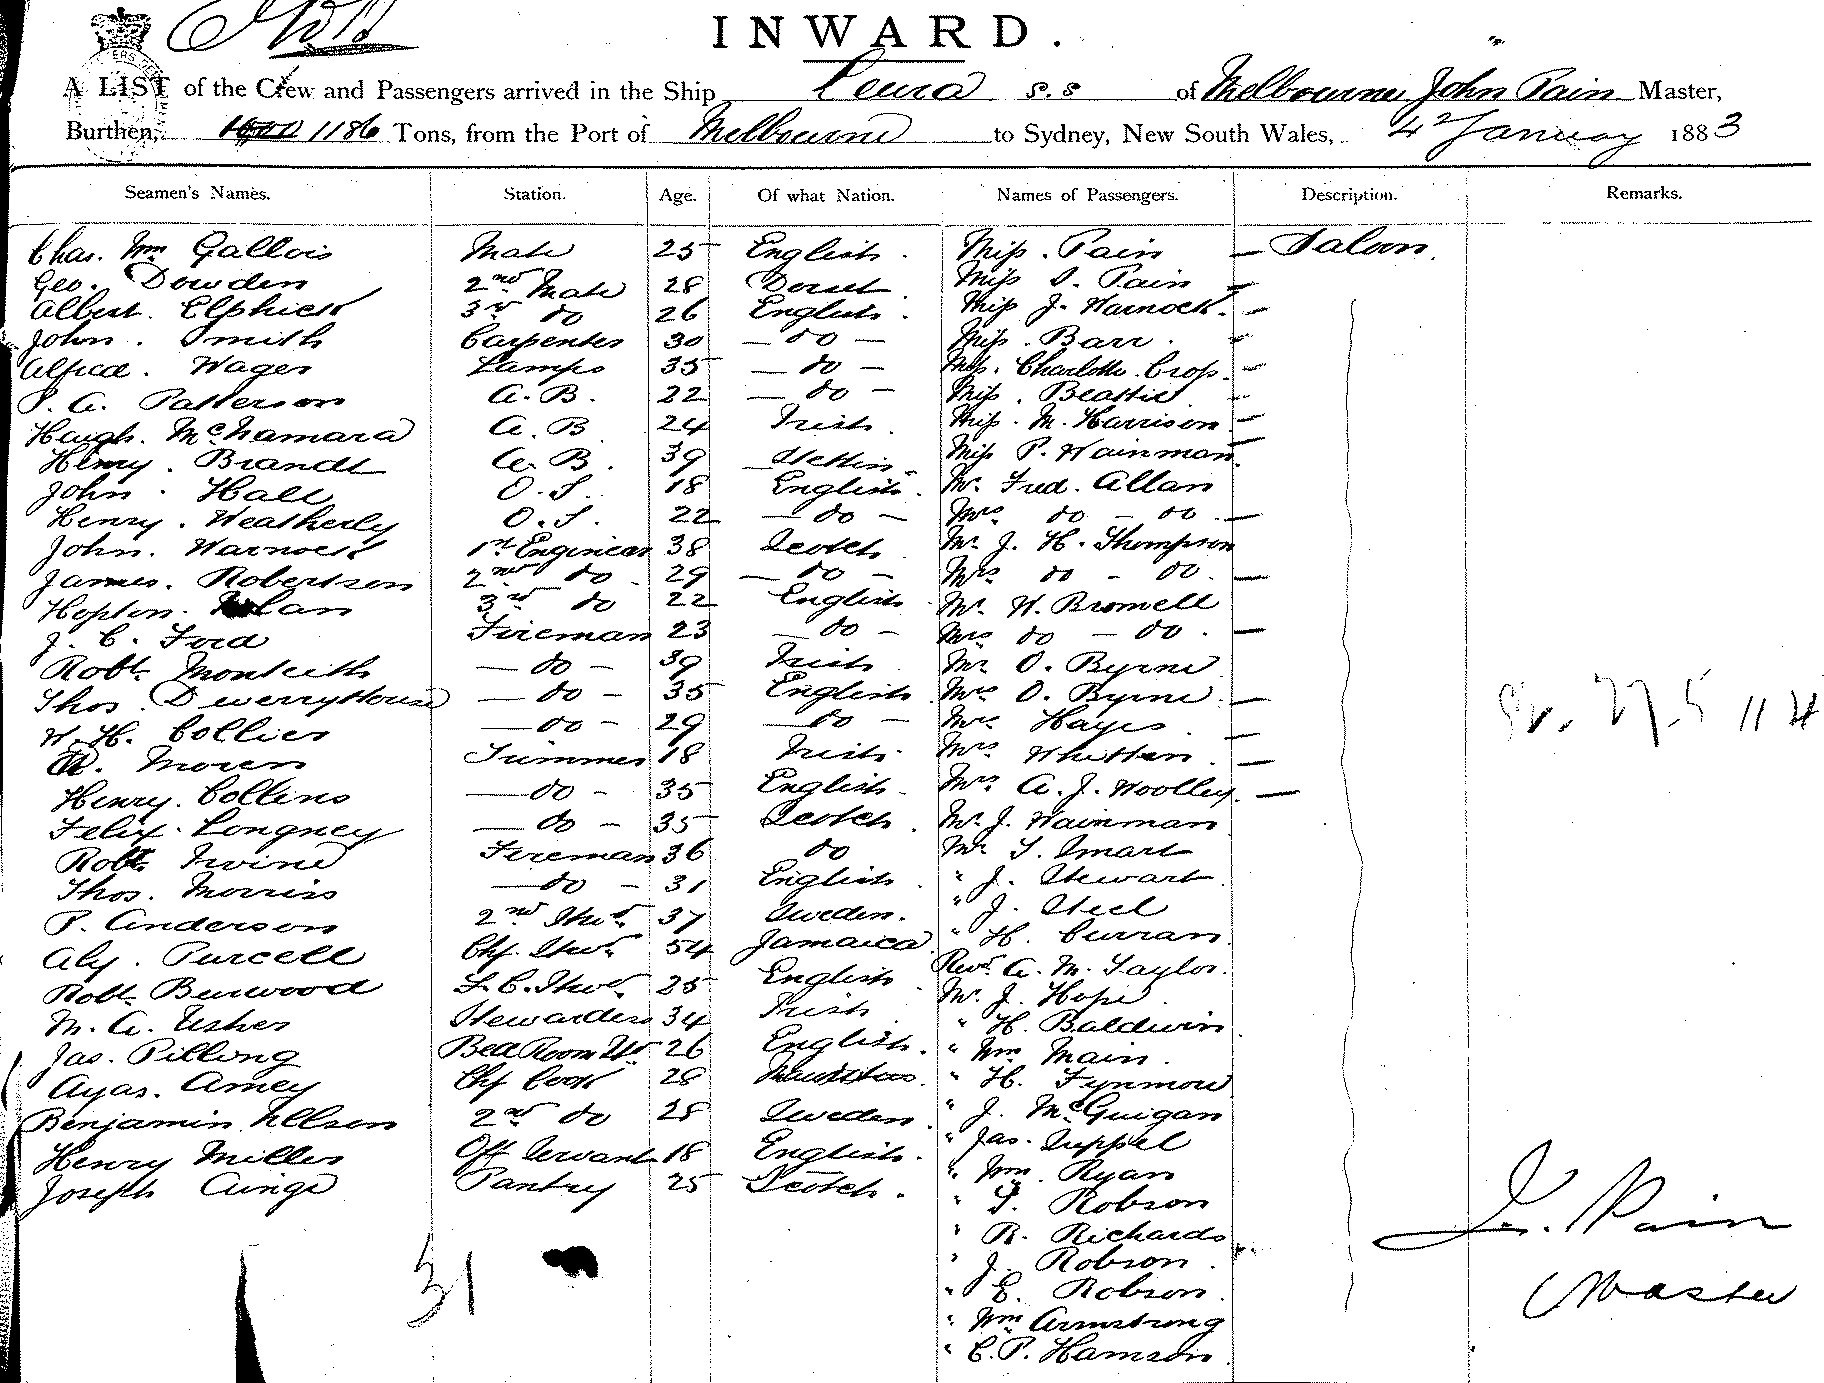 INWARD.
A LIST of the Crew and Passengers arrived in the Ship Leura s.s of Melbourne John Pain Master,
Burthen, 1186 Tons, from the Port of Melbourne to Sydney, New South Wales, 4 January 1883
Seamen's Names. Station. Age. Of what Nation. Names of Passengers. Description. Remarks.
Chas. Wm Gallois Mate 25 English. Miss. Pain — Saloon.
Geo. Dowden 2nd Mate 28 Dorset Miss S. Pain —
Albert. Elphick 3rd do 26 English. Miss J. Warnock. —
John. Smith Carpenter 30 — do — Miss. Barr.
Alfred. Wager Lamps 35 — do — Miss. Charlotte. Cross. —
P. A. Patterson A.B. 22 — do — Miss. Beattie —
Hugh. McNamara A.B 24 Irish. Miss. M. Harrison —
Henry. Brandt A.B. 39 Stettin. Miss P. Wainman —
John. Hall O.S. 18 English. Mr. Fred. Allan
Henry. Weatherly O.S. 22 — do — Mrs do - do. —
John. Warnock 1st Engineer 38 Scotch Mr. J. H. Thompson
James. Robertson 2nd do 29 — do — Mrs do - do. —
Hopton. 3rd do 22 English Mr. W. Bromell
J. C. Ford Fireman 23 — do — Mrs do - do. —
Robt. Monteith — do — 39 Irish Mr O. Byrne
Thos. Dewerryhouse — do — 35 English Mrs O. Byrne —
W. H. Collier — do — 29 — do — Mrs Hayes —
Moren Trimmer 18 Irish. Mrs Whitten. —
Henry. Collins — do — 35 English. Mrs A. J. Woolley. —
Felix. Longney — do — 35 Scotch. Mr. J. Wainman
Robt. Irvine Fireman 36 do Mr S. Smart
Thos. Morriss — do — 31 English. " J. Stewart.
P. Anderson 2nd Stwd 37 Sweden. " J. Steel
Alx. Purcell Chf. Stwd. 54 Jamaica " H. Curran.
Robt. Burwood S.C. Stwd. 25 English Revd. A. M. Taylor.
M. A. Usher Stewardess 34 Irish Mr. J. Hope.
Jas. Pilling Bed Room St 26 English. " H. Baldwin
Ayas. Amey Chf Cook 28 " Wm Main.
Benjamin Nelson 2nd do 28 Sweden " H. Fynmore
Henry Miller Off Servant 18 English. " J. McGuigan
Joseph Cunge Pantry 25 Scotch. " Jas. Suppel
" Wm Ryan
" T. Robson
" R. Richards
" J. Robson.
" E. Robson.
" Wm Armstrong
" C. P. Hamson
31
Jn. Pain
Master